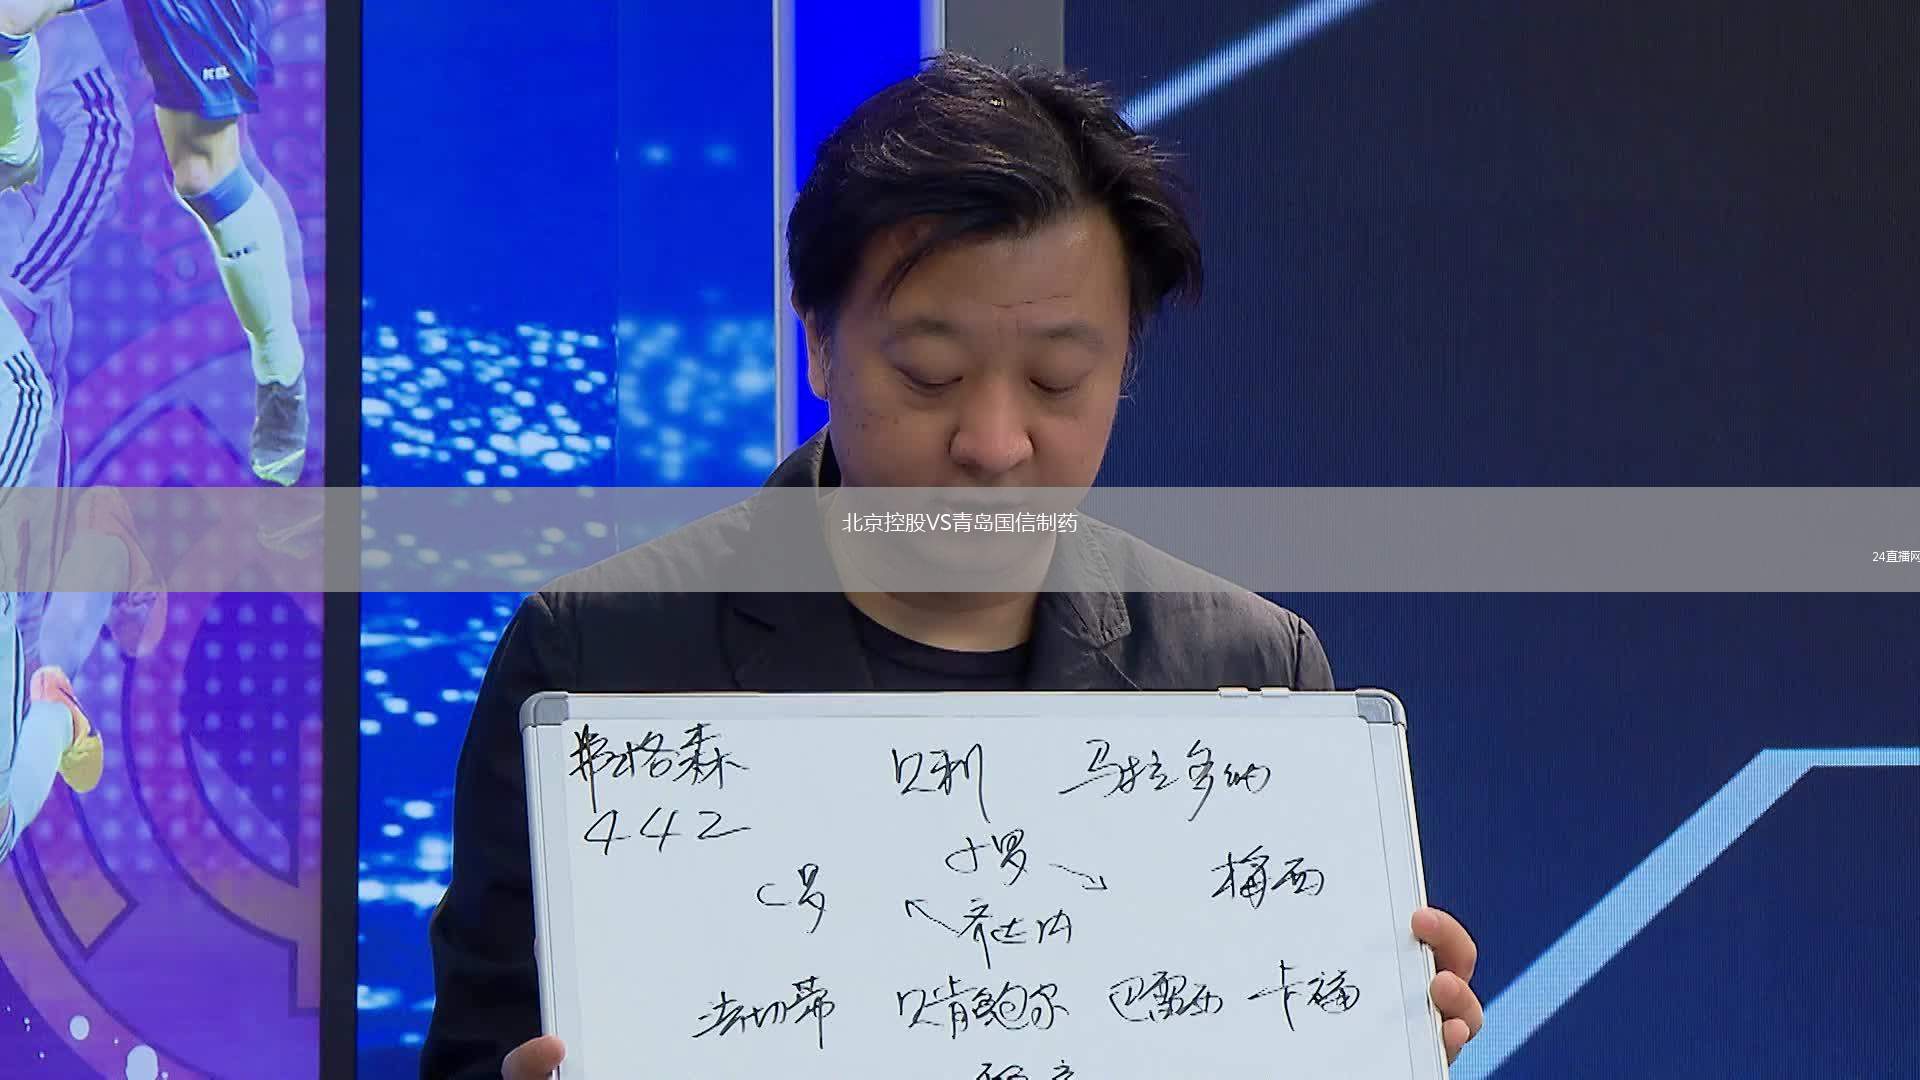 北京控股VS青岛国信制药
24直播网
弗格森 贝利 马拉多纳
442
小罗
C罗 梅西
齐达内
法切蒂 贝肯鲍尔 巴雷西 卡福